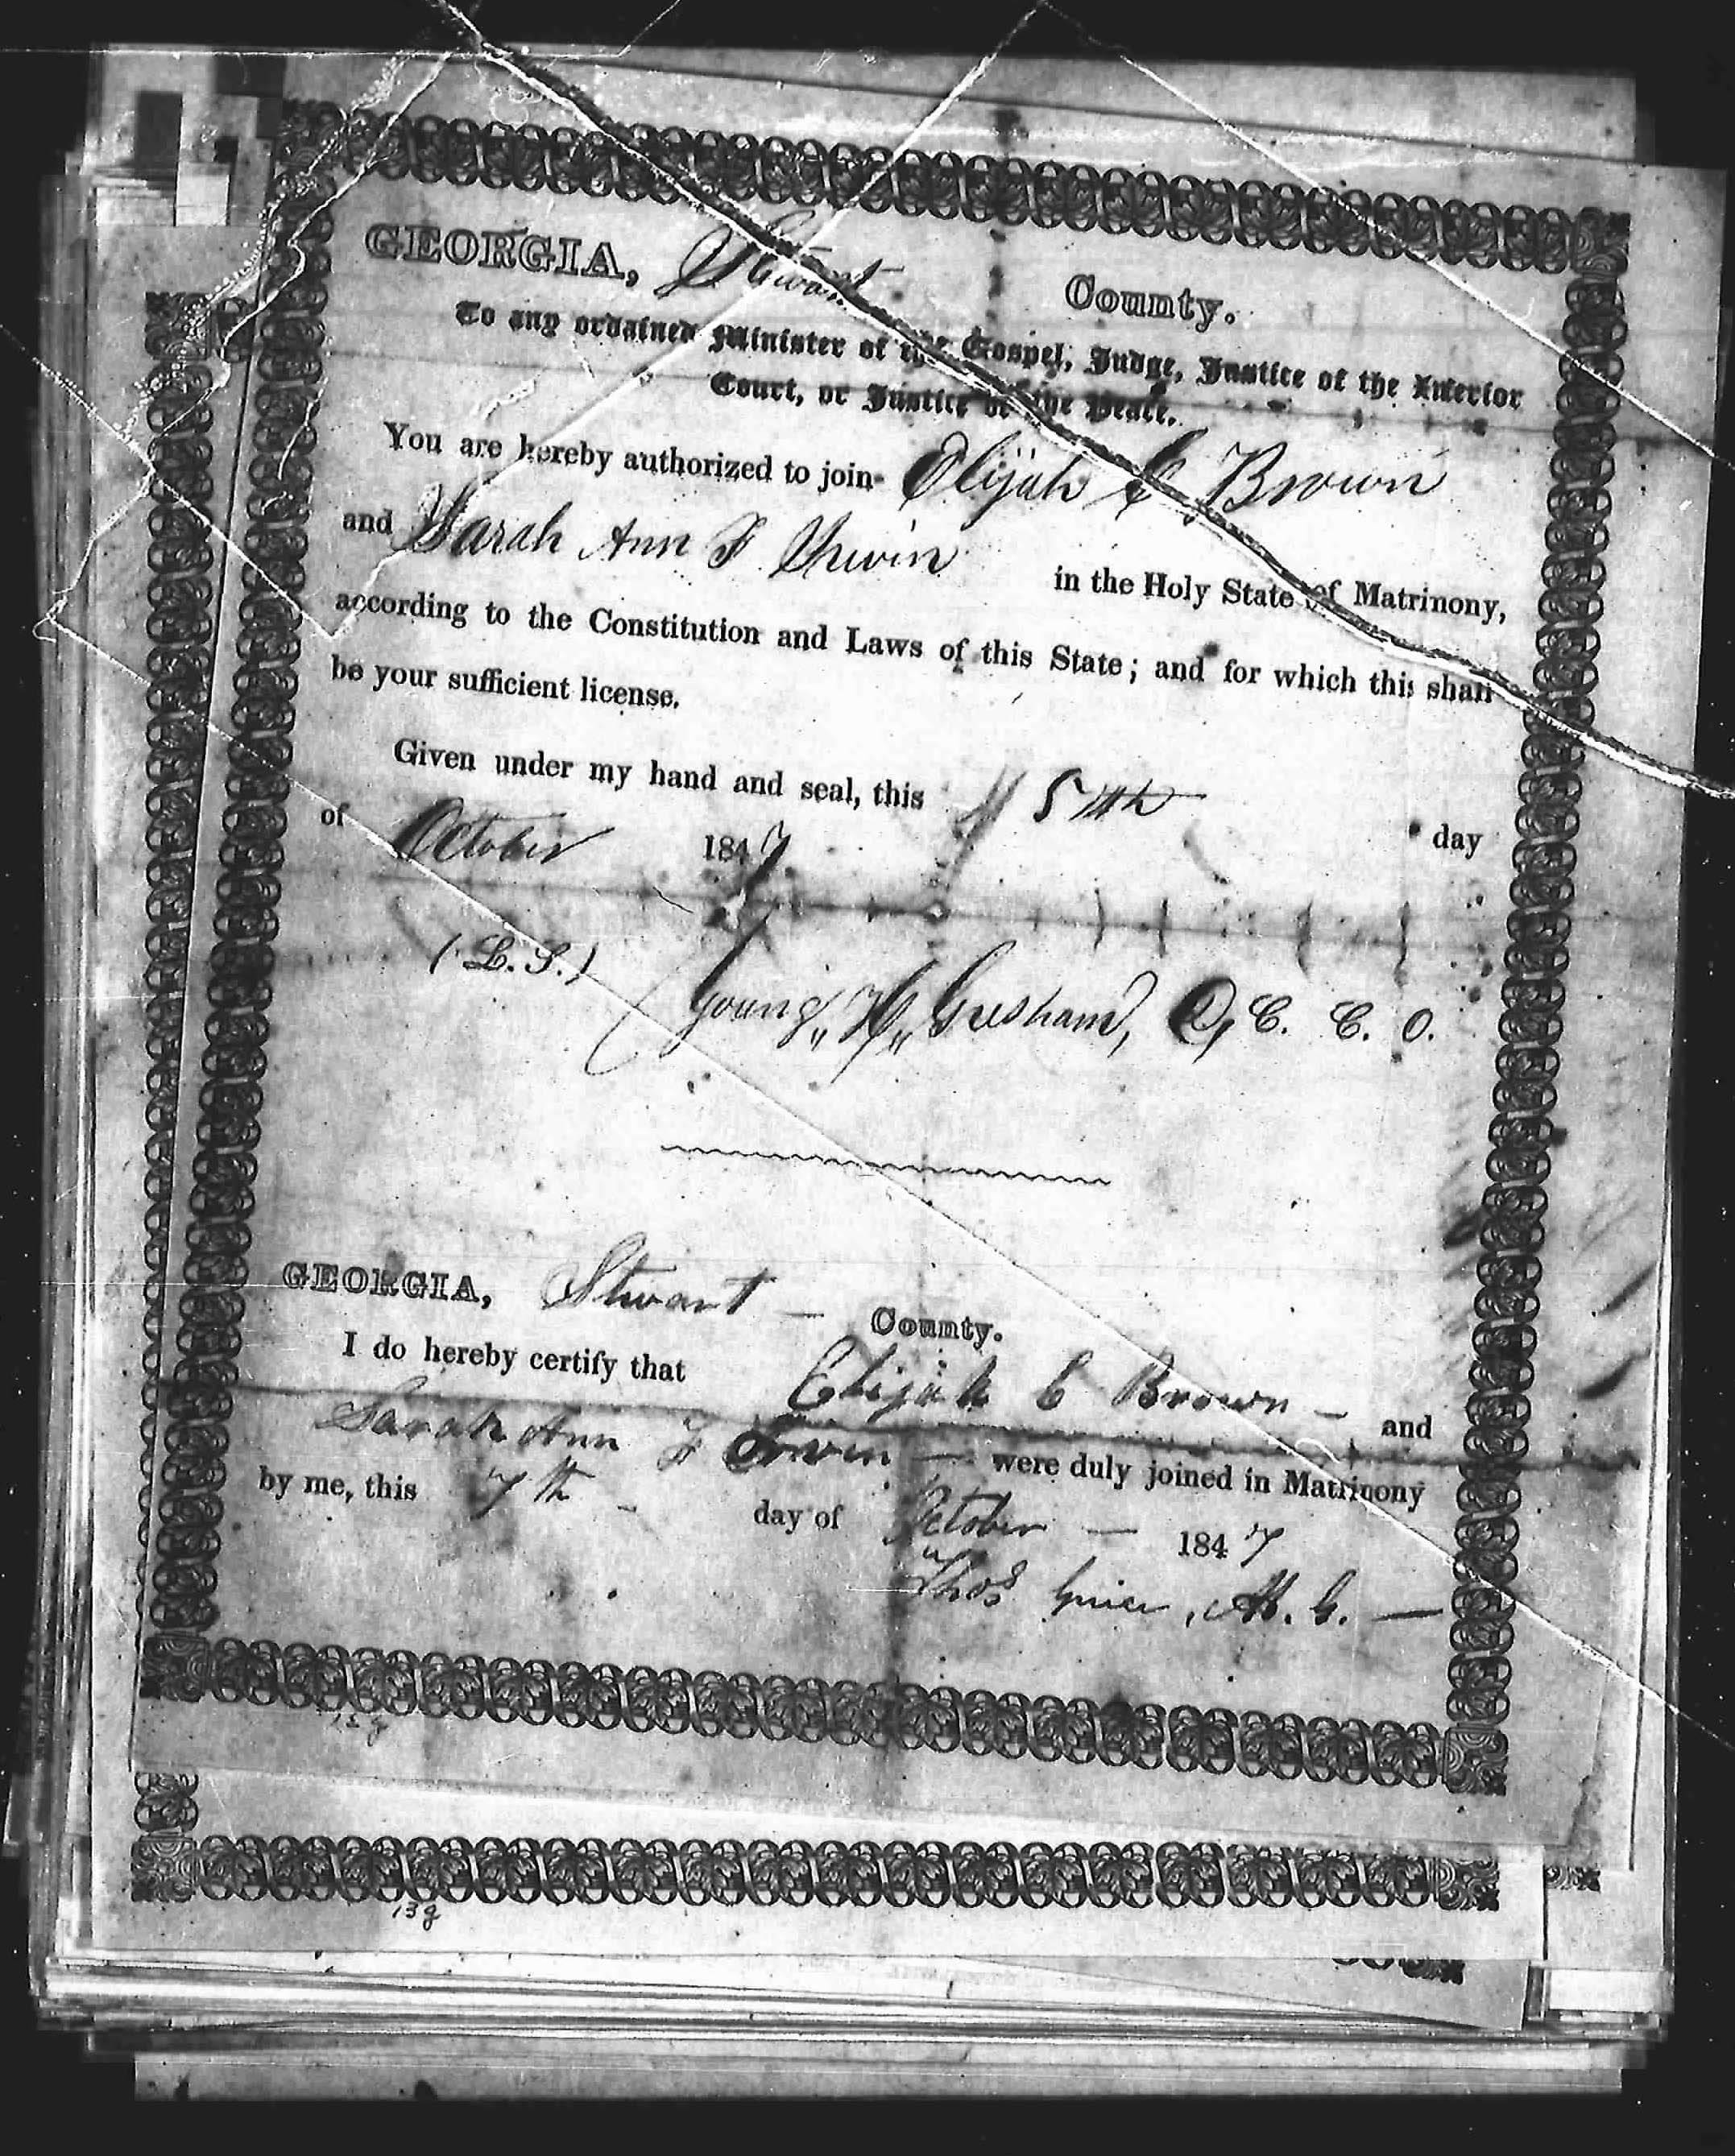 GEORGIA, Stewart County.
To any ordained Minister of the Gospel, Judge, Justice of the Inferior
Court, or Justice of the Peace.
You are hereby authorized to join Elijah C Brown
and Sarah Ann F Irwin in the Holy State of Matrimony,
according to the Constitution and Laws of this State; and for which this shall
be your sufficient license.
Given under my hand and seal, this 5th day
of October 1847
(L.S.)
Young,, H,, Gresham, C. C. O.
GEORGIA, Stewart County.
I do hereby certify that Elijah C Brown — and
Sarah Ann F Irwin — were duly joined in Matrimony
by me, this 7th day of October — 1847
Thos Grice, M. G. —
13g